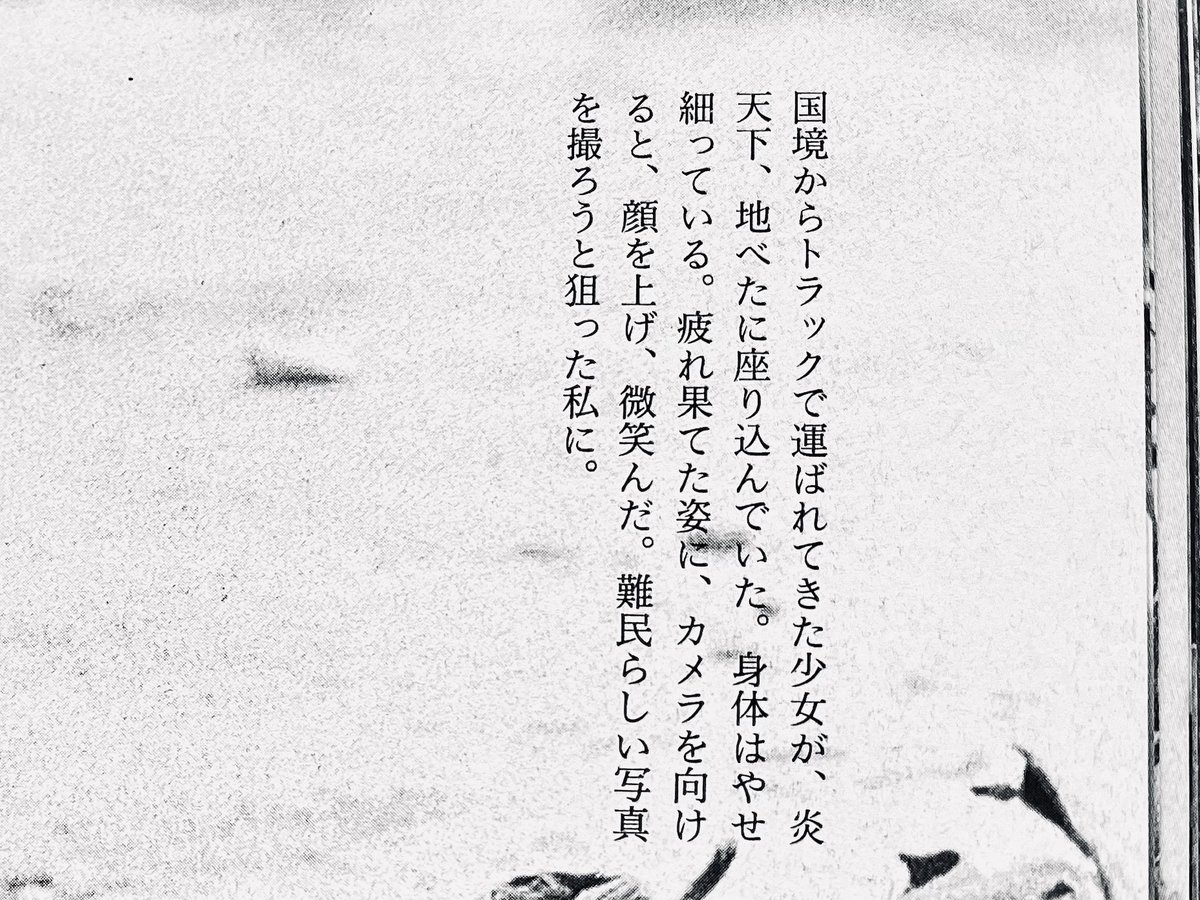 国境からトラックで運ばれてきた少女が、炎
天下、地べたに座り込んでいた。身体はやせ
細っている。疲れ果てた姿に、カメラを向け
ると、顔を上げ、微笑んだ。難民らしい写真
を撮ろうと狙った私に。